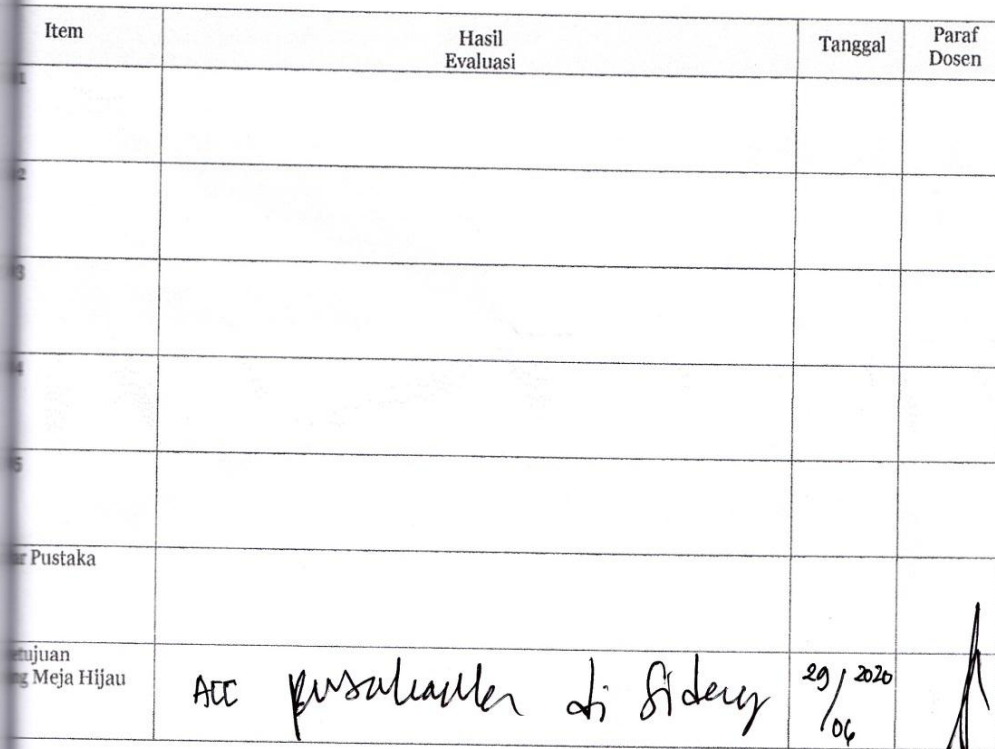 Item
Hasil
Evaluasi
Tanggal
Paraf
Dosen
1
2
3
4
5
Pustaka
tujuan
Meja Hijau
ACC di Sidang
29/06 2020